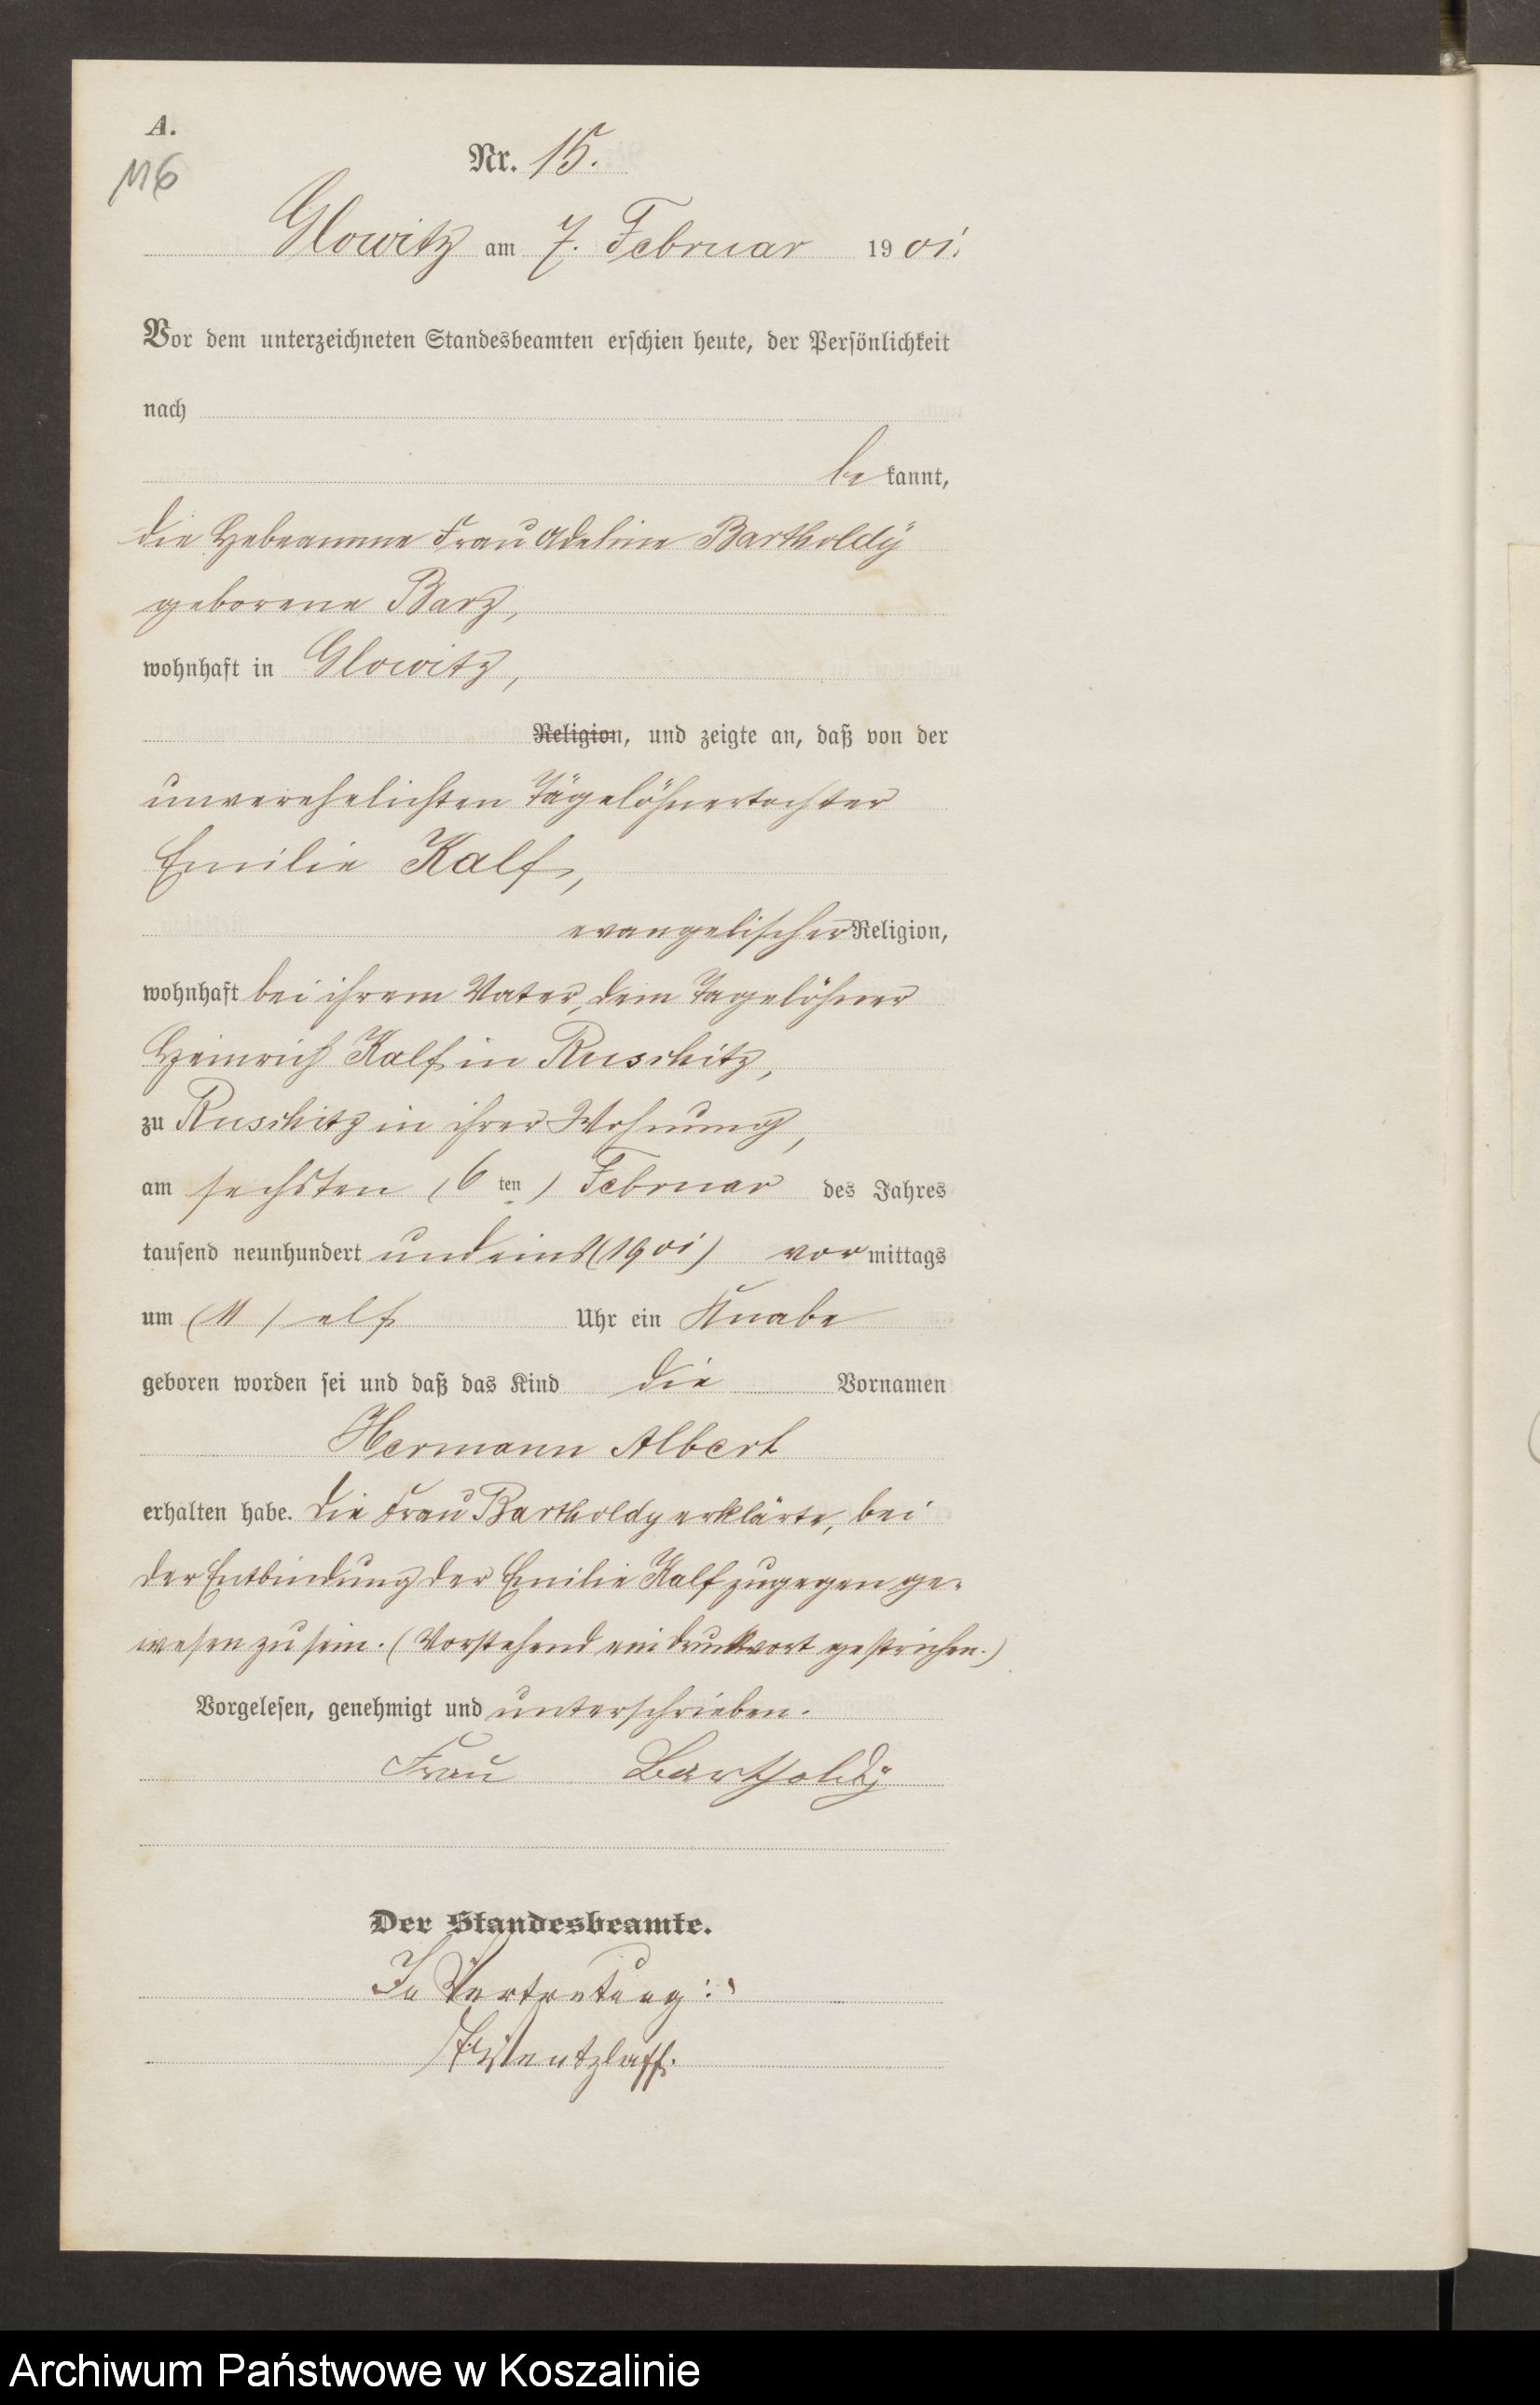 A.
116
Nr. 15.
Glowitz am 7. Februar 1901.
Vor dem unterzeichneten Standesbeamten erschien heute, der Persönlichkeit
nach
be kannt,
die Hebeamme Frau Adeline Bartholdÿ
geborene Barz,
wohnhaft in Glowitz,
Religion, und zeigte an, daß von der
unverehelichten Tägelöhnertochter
Emilie Kalf,
evangelischer Religion,
wohnhaft bei ihrem Vater, dem Tagelöhner
Heinrich Kalf in Ruschitz,
zu Ruschitz in ihrer Wohnung,
am sechsten (6 ten) Februar des Jahres
tausend neunhundert und eins (1901) vor mittags
um (11) elf Uhr ein Knabe
geboren worden sei und daß das Kind die Vornamen
Hermann Albert
erhalten habe. Die Frau Bartholdy erklärte, bei
der Entbindung der Emilie Kalf zugegen ge-
wesen zu sein. (Vorstehend ein Druckwort gestrichen.)
Vorgelesen, genehmigt und unterschrieben.
Frau Bartholdÿ
Der Standesbeamte.
In Vertretung:
Wentzlaff.
Archiwum Państwowe w Koszalinie